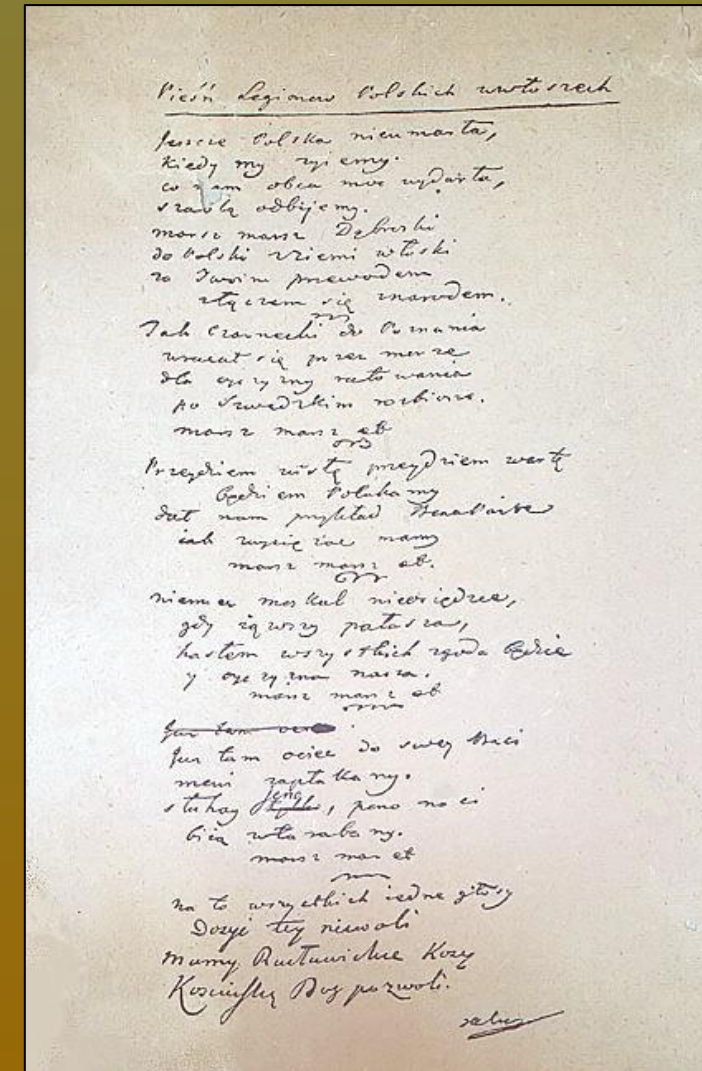 Pieśń Legionow Polskich wewłoszech
Jeszcze Polska nieumarła,
kiedy my żyiemy.
co nam obca moc wydarła,
szablą odbijemy.
marsz marsz Dąbroski
do Polski zziemi włoski
za Twoim przewodem
złączem się znarodem.
Jak Czarnecki do Poznania
wracał się przez morze
dla oyczyzny ratowania
po Szwedzkim rozbiorze.
marsz marsz etc
Przeydziem wisłę przeydziem wartę
będziem Polakamy
dał nam przykład Bonaparte
iak zwyciężac mamy
marsz marsz etc.
niemiec moskal nieosiędzie,
gdy iąwszy pałasza,
hasłem wszystkich zgoda będzie
y oyczyzna nasza.
marsz marsz etc
Jusz tam
Jusz tam ociec do swey Basi
mówi zapłakany.
słuhay jeno, pono nasi
biią wtarabany.
marsz mar etc
na to wszystkich iedne głosy
Dosyć tey niewoli
mamy Racławickie Kosy
Kosciuszkę Bog pozwoli.